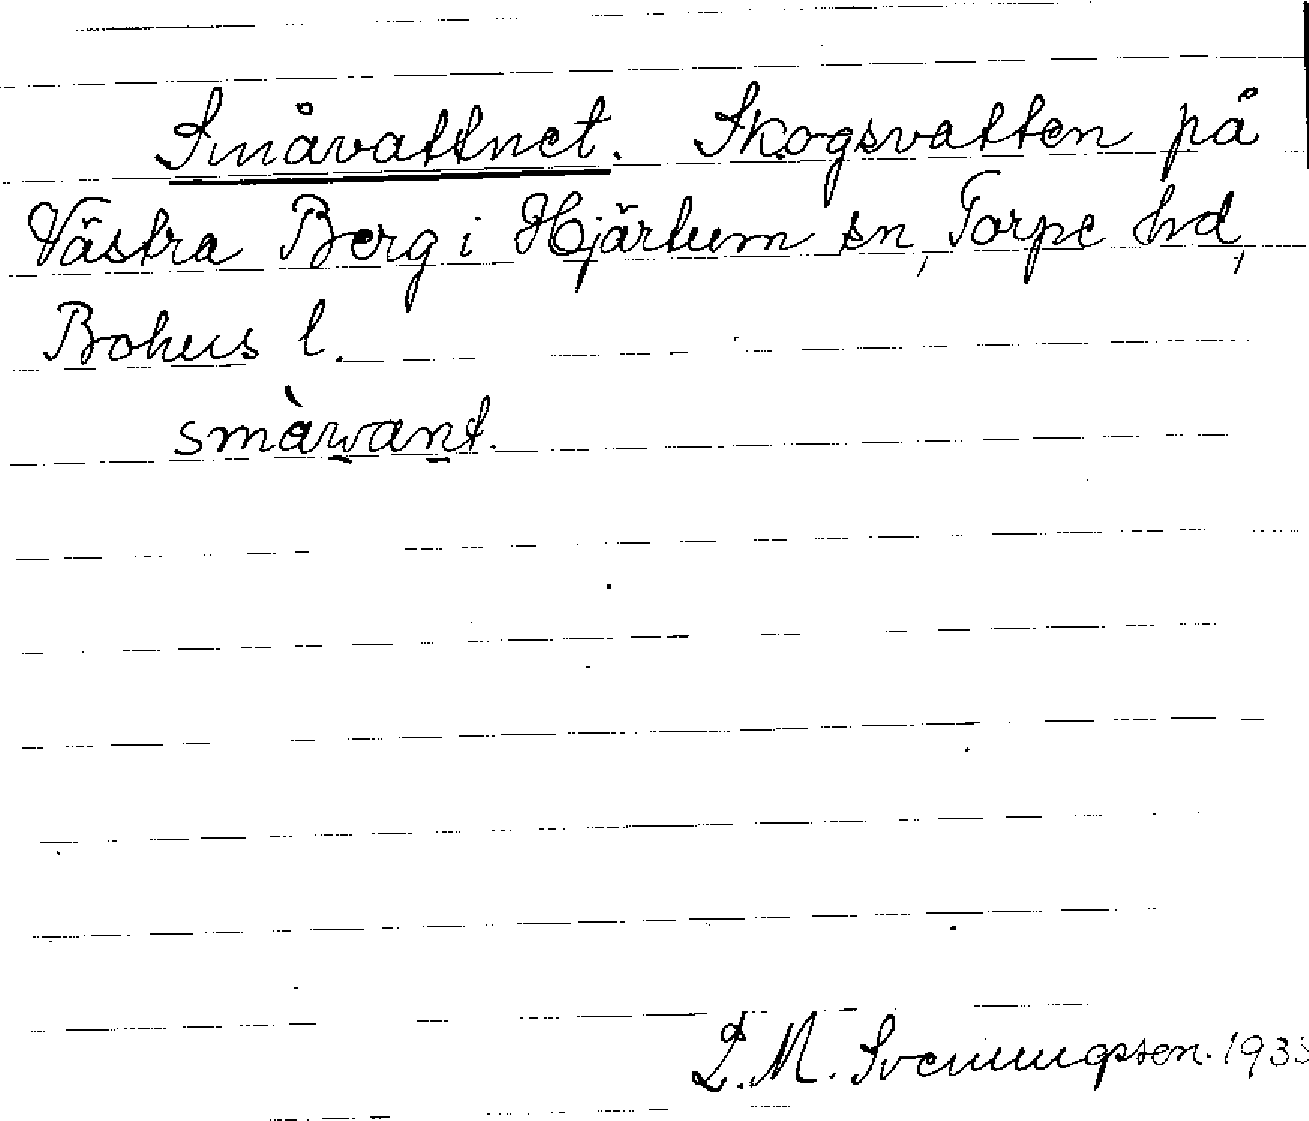 Småvattnet. Skogsvatten på
Västra Berg i Hjärtum sn, Torpe hd,
Bohus l.
småvant.
L. M. Svenungsson. 193